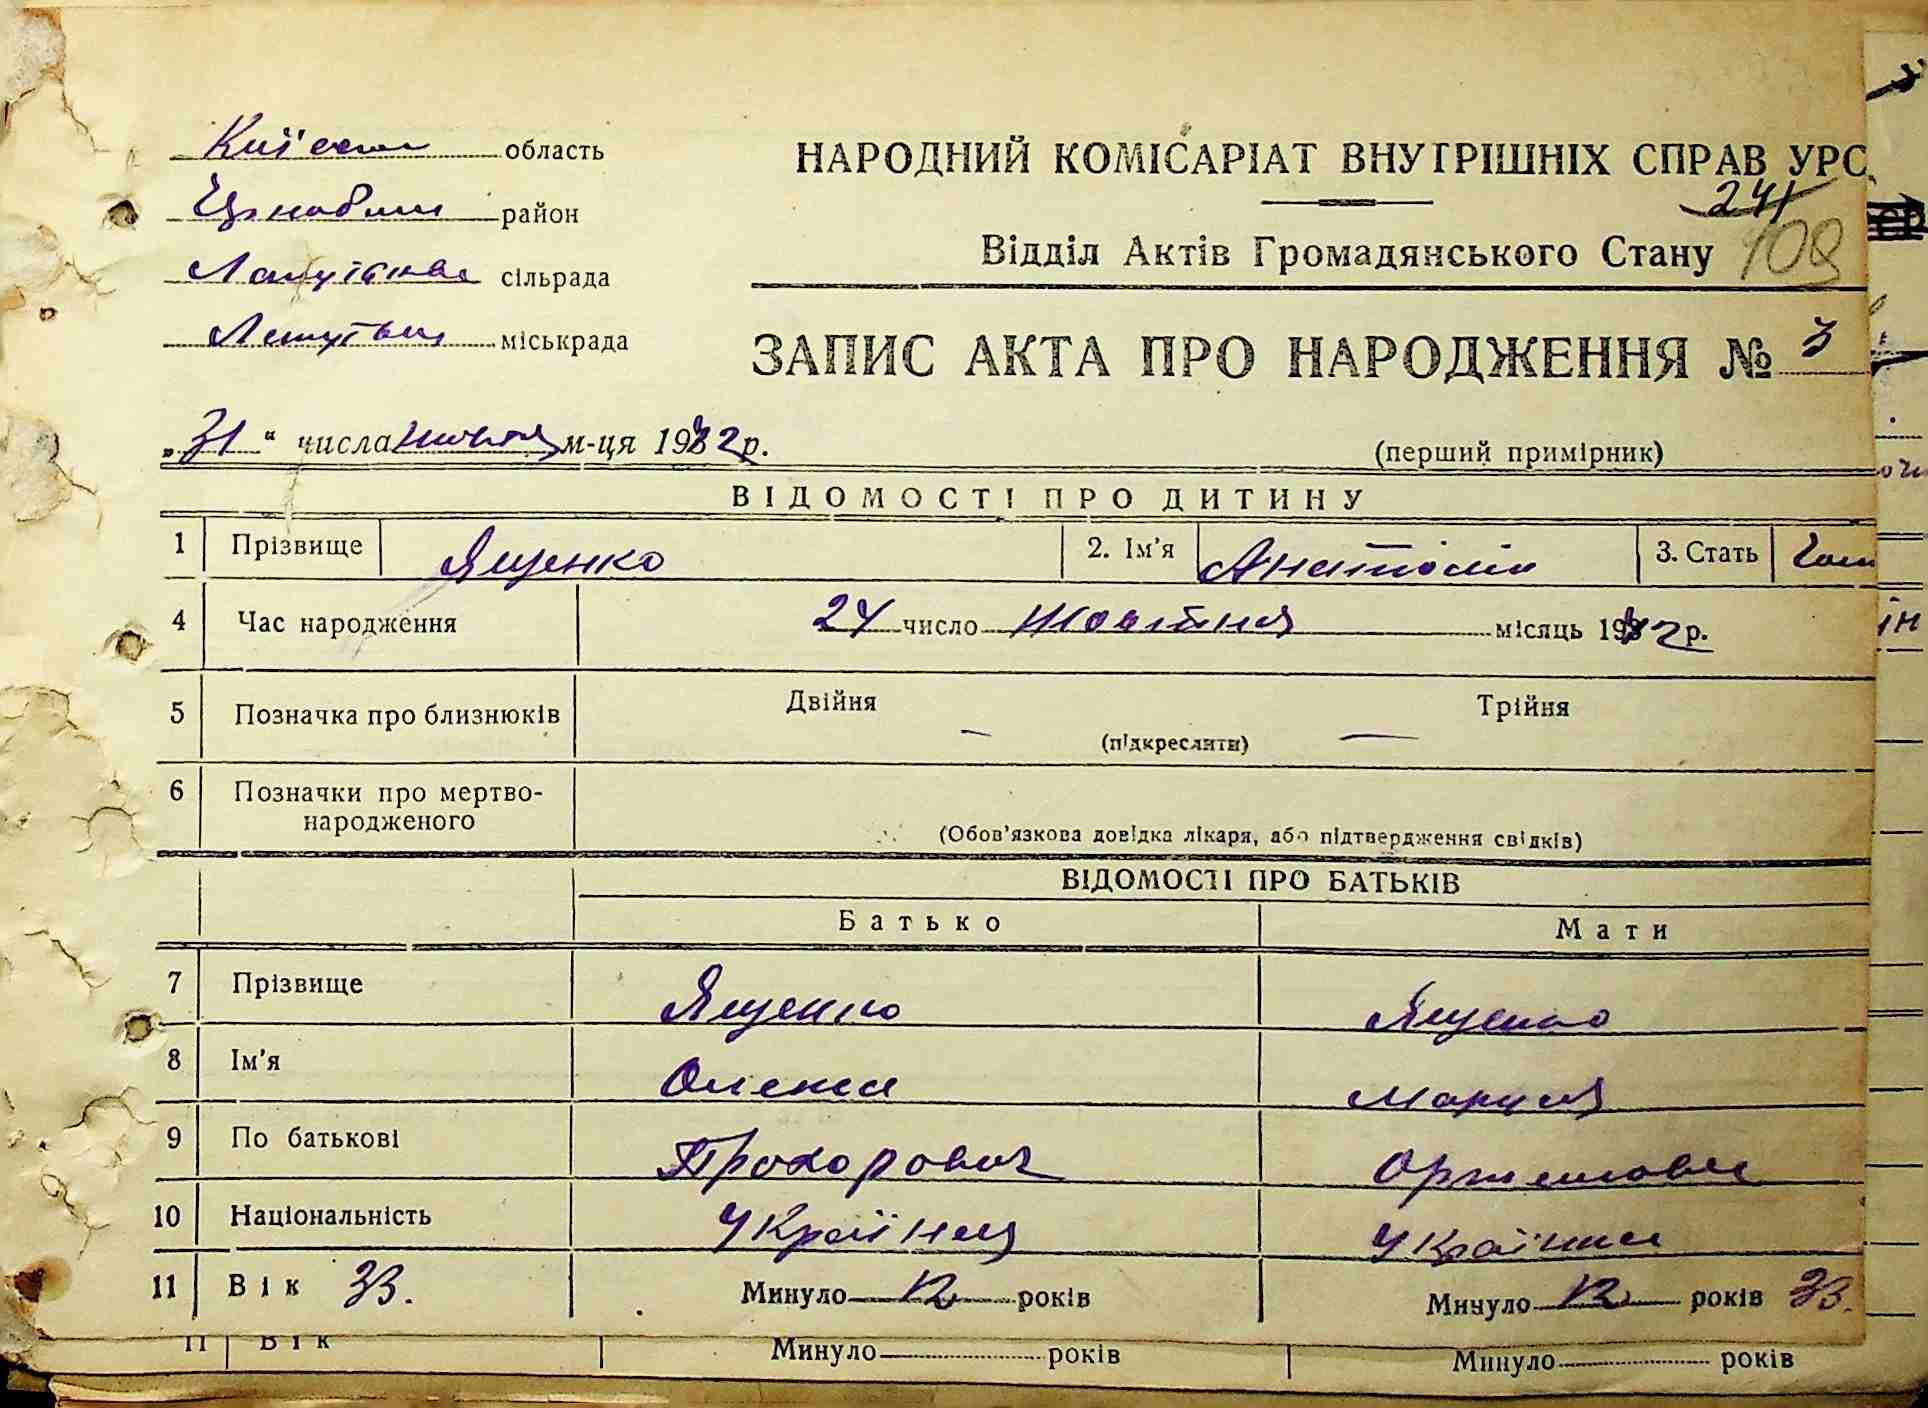 Київська область
НАРОДНИЙ КОМІСАРІАТ ВНУТРІШНІХ СПРАВ УРС
район
241
Відділ Актів Громадянського Стану 108
сільрада
міськрада
ЗАПИС АКТА ПРО НАРОДЖЕННЯ № 3
„31“ числа м-ця 1942р.
(перший примірник)
ВІДОМОСТІ ПРО ДИТИНУ
1 Прізвище Ященко 2. Ім'я Анатолій 3. Стать
4 Час народження 24 число Жовтня місяць 1942р.
5 Позначка про близнюків Двійня — (підкреслити) — Трійня
6 Позначки про мертво-
народженого
(Обов'язкова довідка лікаря, або підтвердження свідків)
ВІДОМОСТІ ПРО БАТЬКІВ
Батько Мати
7 Прізвище Ященко Ященко
8 Ім'я Олекса Мария
9 По батькові Прохорович
10 Національність Українец Українка
11 Вік 33. Минуло років Минуло років 33.
11 Вік Минуло років Минуло років